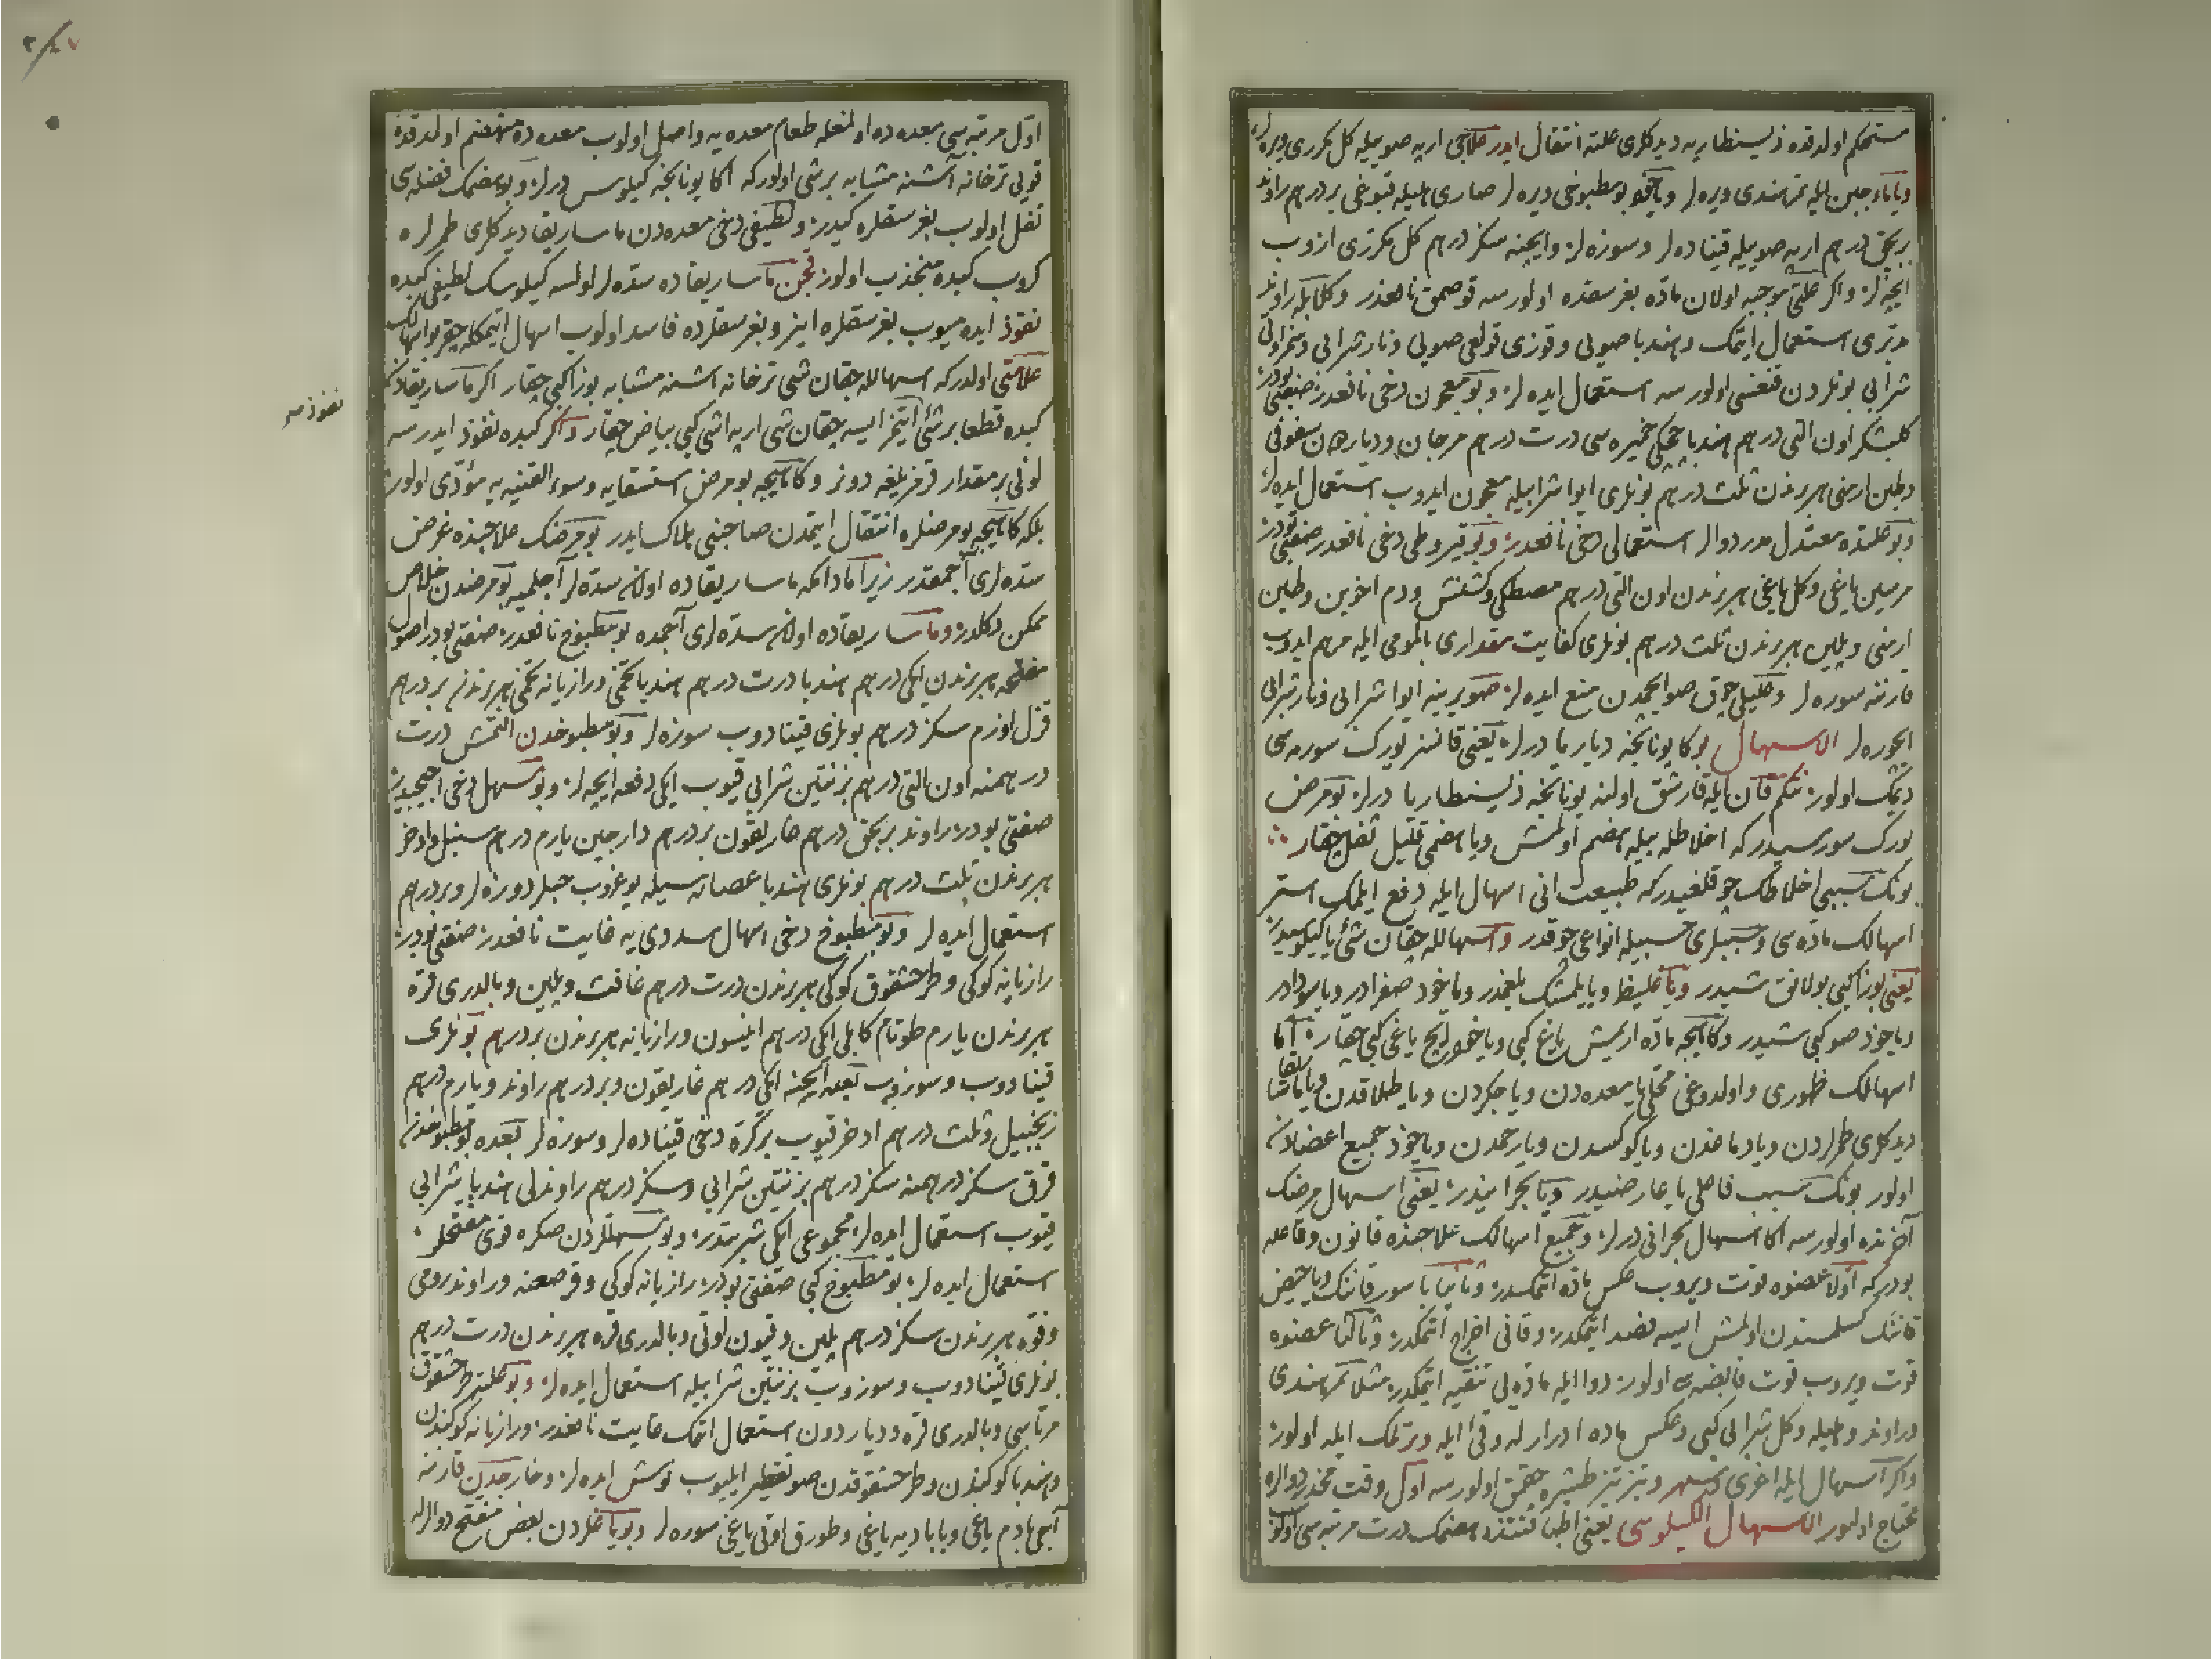 مستحكم اولدقده ذيسنطاريه ديدكلرى علته انتقال ايدر علاجى ارپه صوييله كل مكررى ويره لر
وياماء جبن ايله تمر هندى ويره لر وياخود بو مطبوخى ويره لر صارى هليله قبوغى بر درهم راوند
بر بچق درهم ارپه صوييله قيناده لر وسوزه لر وايچنه سكز درهم كل مكررى ازوب
ايچه لر واكر علتى موجبه اولان ماده بغرسقده اولورسه قوصمق نافعدر وكلابله راوند
مرباسى استعمال ايتمك وهندبا صويى وقوزى قولاغى صويى ونار شرابى
شرابى بونلردن قنغسى اولورسه استعمال ايده لر وبو معجون دخى نافعدر صنعتى بودر
كلبشكر اون التى درهم هندبا چچكى خميره سى درت درهم مرجان سفوفى
وطين ارمنى هر برندن ثلث درهم بونلرى ايوا شرابيله معجون ايدوب استعمال ايده لر
وبو علتده معتدل مدر دوالر استعمالى دخى نافعدر وبو قيروطى دخى نافعدر صنعتى بودر
مرسين ياغى وكل ياغى هر برندن اون التى درهم مصطكى وكشنش ودم اخوين وطين
ارمنى وپلين هر برندن ثلث درهم بونلرى كفايت مقدارى بالمومى ايله مرهم ايدوب
قارننه سوره لر وعليلى چوق صو ايچمدن منع ايده لر صو يرينه ايوا شرابى ونار شرابى
ايچوره لر الاسهال بوكا يونانجه دياريا ديرلر يعنى قانسز يورك سورمه سى
ديمك اولور نتكم قان ايله قارشق اولنه يونانجه ذيسنطاريا ديرلر بو مرض
يورك سورمسيدر كه اخلاطله بيله هضم اولمش ويا هضمى قليل ثفل چقار
بونك سببى اخلاطك چوقلغيدر كه طبيعت انى اسهال ايله دفع ايلمك استر
اسهالك ماده سى وسببلرى حسبيله انواعى چوقدر واسهالله چقان شئ يا كيلوسيدر
يعنى بوزا كبى بولانق شيدر ويا غليظ ويا يلمشك بلغمدر وياخود صفرادر ويا سودادر
وياخود صو كبى شيدر وكاهيجه ماده اريمش ياغ كبى وياخود ايچ ياغى كبى چقار اما
اسهالك ظهورى واولدوغى محلى يا معده دن ويا جكردن ويا طلاقدن ويا ماساريقا
ديدكلرى طمرلردن ويا دماغدن ويا كوكسدن ويا رحمدن وياخود جميع اعضادن
اولور بونك سبب فاعلى يا عارضيدر ويا بحرانيدر يعنى اسهال مرضك
آخرنده اولورسه اكا اسهال بحرانى ديرلر وجميع اسهالك علاجنده قانون وقاعده
بودر كه اولا عضوه قوت ويروب عكس ماده اتمكدر وثانيا باسور قاننك ويا حيض
قاننك كسلمسندن اولمش ايسه فصد ايتمكدر وقانى اخراج اتمكدر وثالثا عضوه
قوت ويروب قوت قابضه سى اولور دوا ايله ماده يى تنقيه ايتمكدر مثلا تمر هندى
وراوند وهليله وكل شرابى كبى وعكس ماده ادرار له وقى ايله وترلمك ايله اولور
واكر اسهال ايله اغرى وتيز تيز طشره چقمق اولورسه اول وقت مخدر دوالره
محتاج اولنور الاسهال الكيلوسى يعنى اطبا قتنده هضمك درت مرتبه سى اولوب
اول مرتبه سى معده ده اولمغله طعام معده يه واصل اولوب معده ده منهضم اولدقده
قويى ترخانه آشنه مشابه بر شى اولور كه اكا يونانجه كيلوس ديرلر وبو هضمك فضله سى
ثفل اولوب بغرسقلره كيدر ولطيفى دخى معده دن ماساريقا ديدكلرى طمرلره
كروب كبده منجذب اولور قچن ماساريقاده سده لر اولسه كيلوسك لطيفى كبده
نفوذ ايده ميوب بغرسقلره اينر وبغرسقلرده فاسد اولوب اسهال ايتمكله چقر بو اسهالك
علامتى اولدر كه اسهالله چقان شى ترخانه اشنه مشابه بوزا كبى چقار اكر ماساريقادن
نفوذ
كبده قطعا بر شئ ايتمز ايسه چقان شى ارپه اشى كبى بياض چقار واكر كبده نفوذ ايدرسه
لونى بر مقدار قزيلغه دونر وكاهيجه بو مرض استسقايه وسوء القنيه يه مؤدى اولور
بلكه كاهيجه بو مرضلره انتقال ايتمدن صاحبنى هلاك ايدر بو مرضك علاجنده غرض
سده لرى آچمقدر زيرا مادامكه ماساريقاده اولان سده لر آچلميه بو مرضدن خلاص
ممكن دكلدر وماساريقاده اولان سده لرى آچمده بو مطبوخ نافعدر صنعتى بودر اصول
مفتحه هر برندن ايكى درهم هندبا درت درهم هندبا تخمى ورازيانه تخمى هر برندن بر درهم
قزل اوزم سكز درهم بونلرى قينادوب سوزه لر وبو مطبوخدن التمش درت
درهمنه اون التى درهم بزنتين شرابى قيوب ايكى دفعه ايچه لر وبو مسهل دخى
صنعتى بودر راوند بر بچق درهم غاريقون بر درهم دارچين يارم درهم سنبل واذخر
هر برندن ثلث درهم بونلرى هندبا عصاره سيله يوغروب حبلر دوزه لر وبر درهم
استعمال ايده لر وبو مطبوخ دخى اسهال سددى يه غايت نافعدر صنعتى بودر
رازيانه كوكى وطرخشقوق كوكى هر برندن درت درهم غافث وپلين وبالدرى قره
هر برندن يارم طوتام كابلى ايكى درهم انيسون ورازيانه هر برندن بر درهم بونلرى
قينادوب وسوزوب بعده ايچنه ايكى درهم غاريقون وبر درهم راوند ويارم درهم
زنجبيل وثلث درهم اذخر قيوب بر كره دخى قيناده لر وسوزه لر بعده بو مطبوخدن
قرق سكز درهمنه سكز درهم بزنتين شرابى وسكز درهم راوندلى هندبا شرابى
قيوب استعمال ايده لر مجموعى ايكى شربتدر وبو مسهللردن صكره قوى مفتحلر
استعمال ايده لر بو مطبوخ كبى صنعتى بودر رازيانه كوكى وقرصعنه وراوند رومى
وفوه هر برندن سكز درهم پلين وقيون اوتى وبالدرى قره هر برندن درت درهم
بونلرى قينادوب وسوزوب بزنتين شرابيله استعمال ايده لر وبو علتده طرخشقوق
مرباسى وبالدرى قره ودياردون استعمال اتمك غايت نافعدر ورازيانه كوكندن
وهندبا كوكندن وطرخشقوقدن صو تقطير ايليوب نوش ايده لر وخارجدن قارننه
آجى بادم ياغى وبابادیه ياغى وطورق اوتى ياغى سوره لر وبو ياغلردن بعض مفتح دوالرله